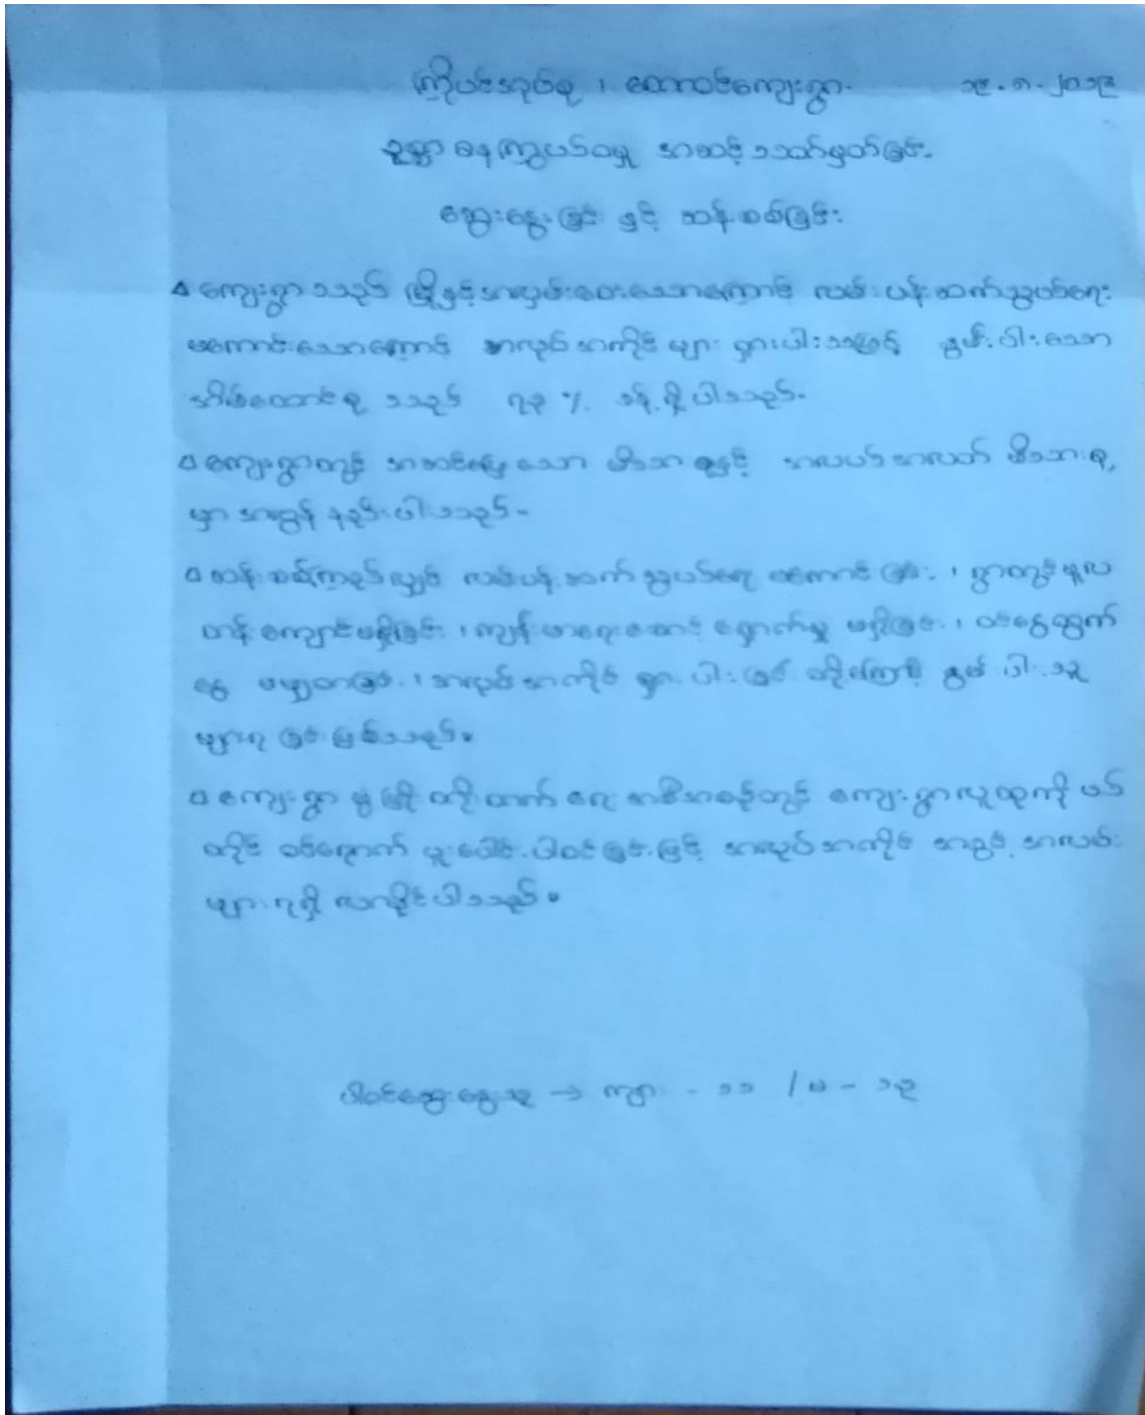 ကြို့ပင်အုပ်စု ၊ တောဝင်ကျေးရွာ ၁၉.၈.၂၀၁၉
ဥစ္စာ ဓန ကြွယ်ဝမှု အဆင့် သတ်မှတ်ခြင်း
ဆွေးနွေးခြင်း နှင့် ဆန်းစစ်ခြင်း
ကျေးရွာ သည် မြို့နှင့်အလှမ်းဝေးသောကြောင့် လမ်းပန်းဆက်သွယ်ရေး
မကောင်းသောကြောင့် အလုပ်အကိုင် များ ရှားပါးသဖြင့် နွမ်းပါးသော
အိမ်ထောင်စု သည် ၇၃ % ခန့် ရှိ ပါသည်။
ကျေးရွာတွင် အဆင်ပြေ သော မိသားစုနှင့် အလယ်အလတ် မိသားစု
မှာ အလွန် နည်းပါးသည်။
ဆန်းစစ်ကြည့်လျှင် လမ်းပန်းဆက်သွယ်ရေး မကောင်းခြင်း ၊ ရွာတွင် မူလ
တန်းကျောင်းမရှိခြင်း ၊ ကျန်းမာရေးစောင့်ရှောက်မှု မရှိခြင်း ၊ ဝင်ငွေထွက်
ငွေ မမျှတခြင်း ၊ အလုပ်အကိုင် ရှားပါးခြင်း တို့ကြောင့် နွမ်းပါးသူ
များရခြင်း ဖြစ်သည်။
ကျေးရွာ ဖွံ့ဖြိုးတိုးတက်ရေး အစီအစဉ်တွင် ကျေးရွာလူထုကိုယ်
တိုင် ဝင်ရောက် ပူးပေါင်းပါဝင်ခြင်းဖြင့် အလုပ်အကိုင် အခွင့်အလမ်း
များ ရရှိ လာနိုင်ပါသည်။
ပါဝင်ဆွေးနွေးသူ → ကျား - ၁၁ / မ - ၁၃